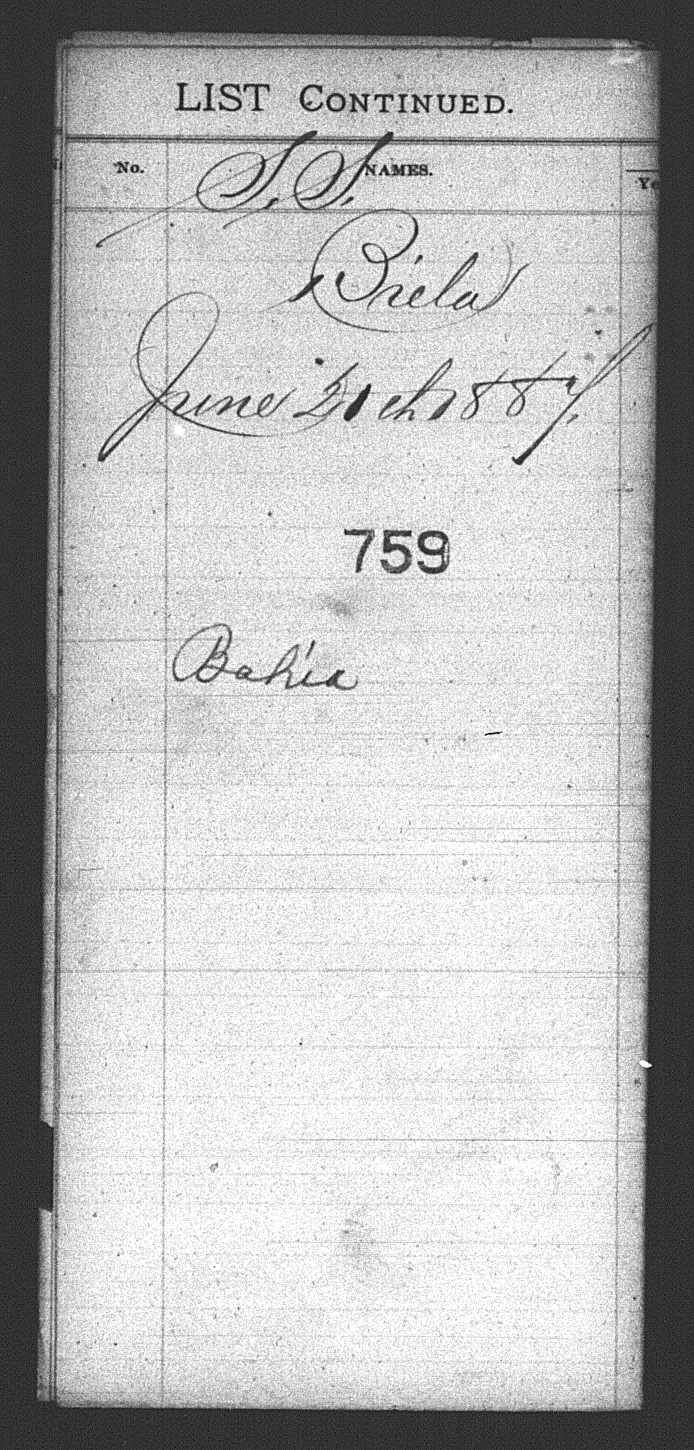 LIST CONTINUED.
No. NAMES.
S. S.
Biela
June 21ch 1887.
759
Bahia